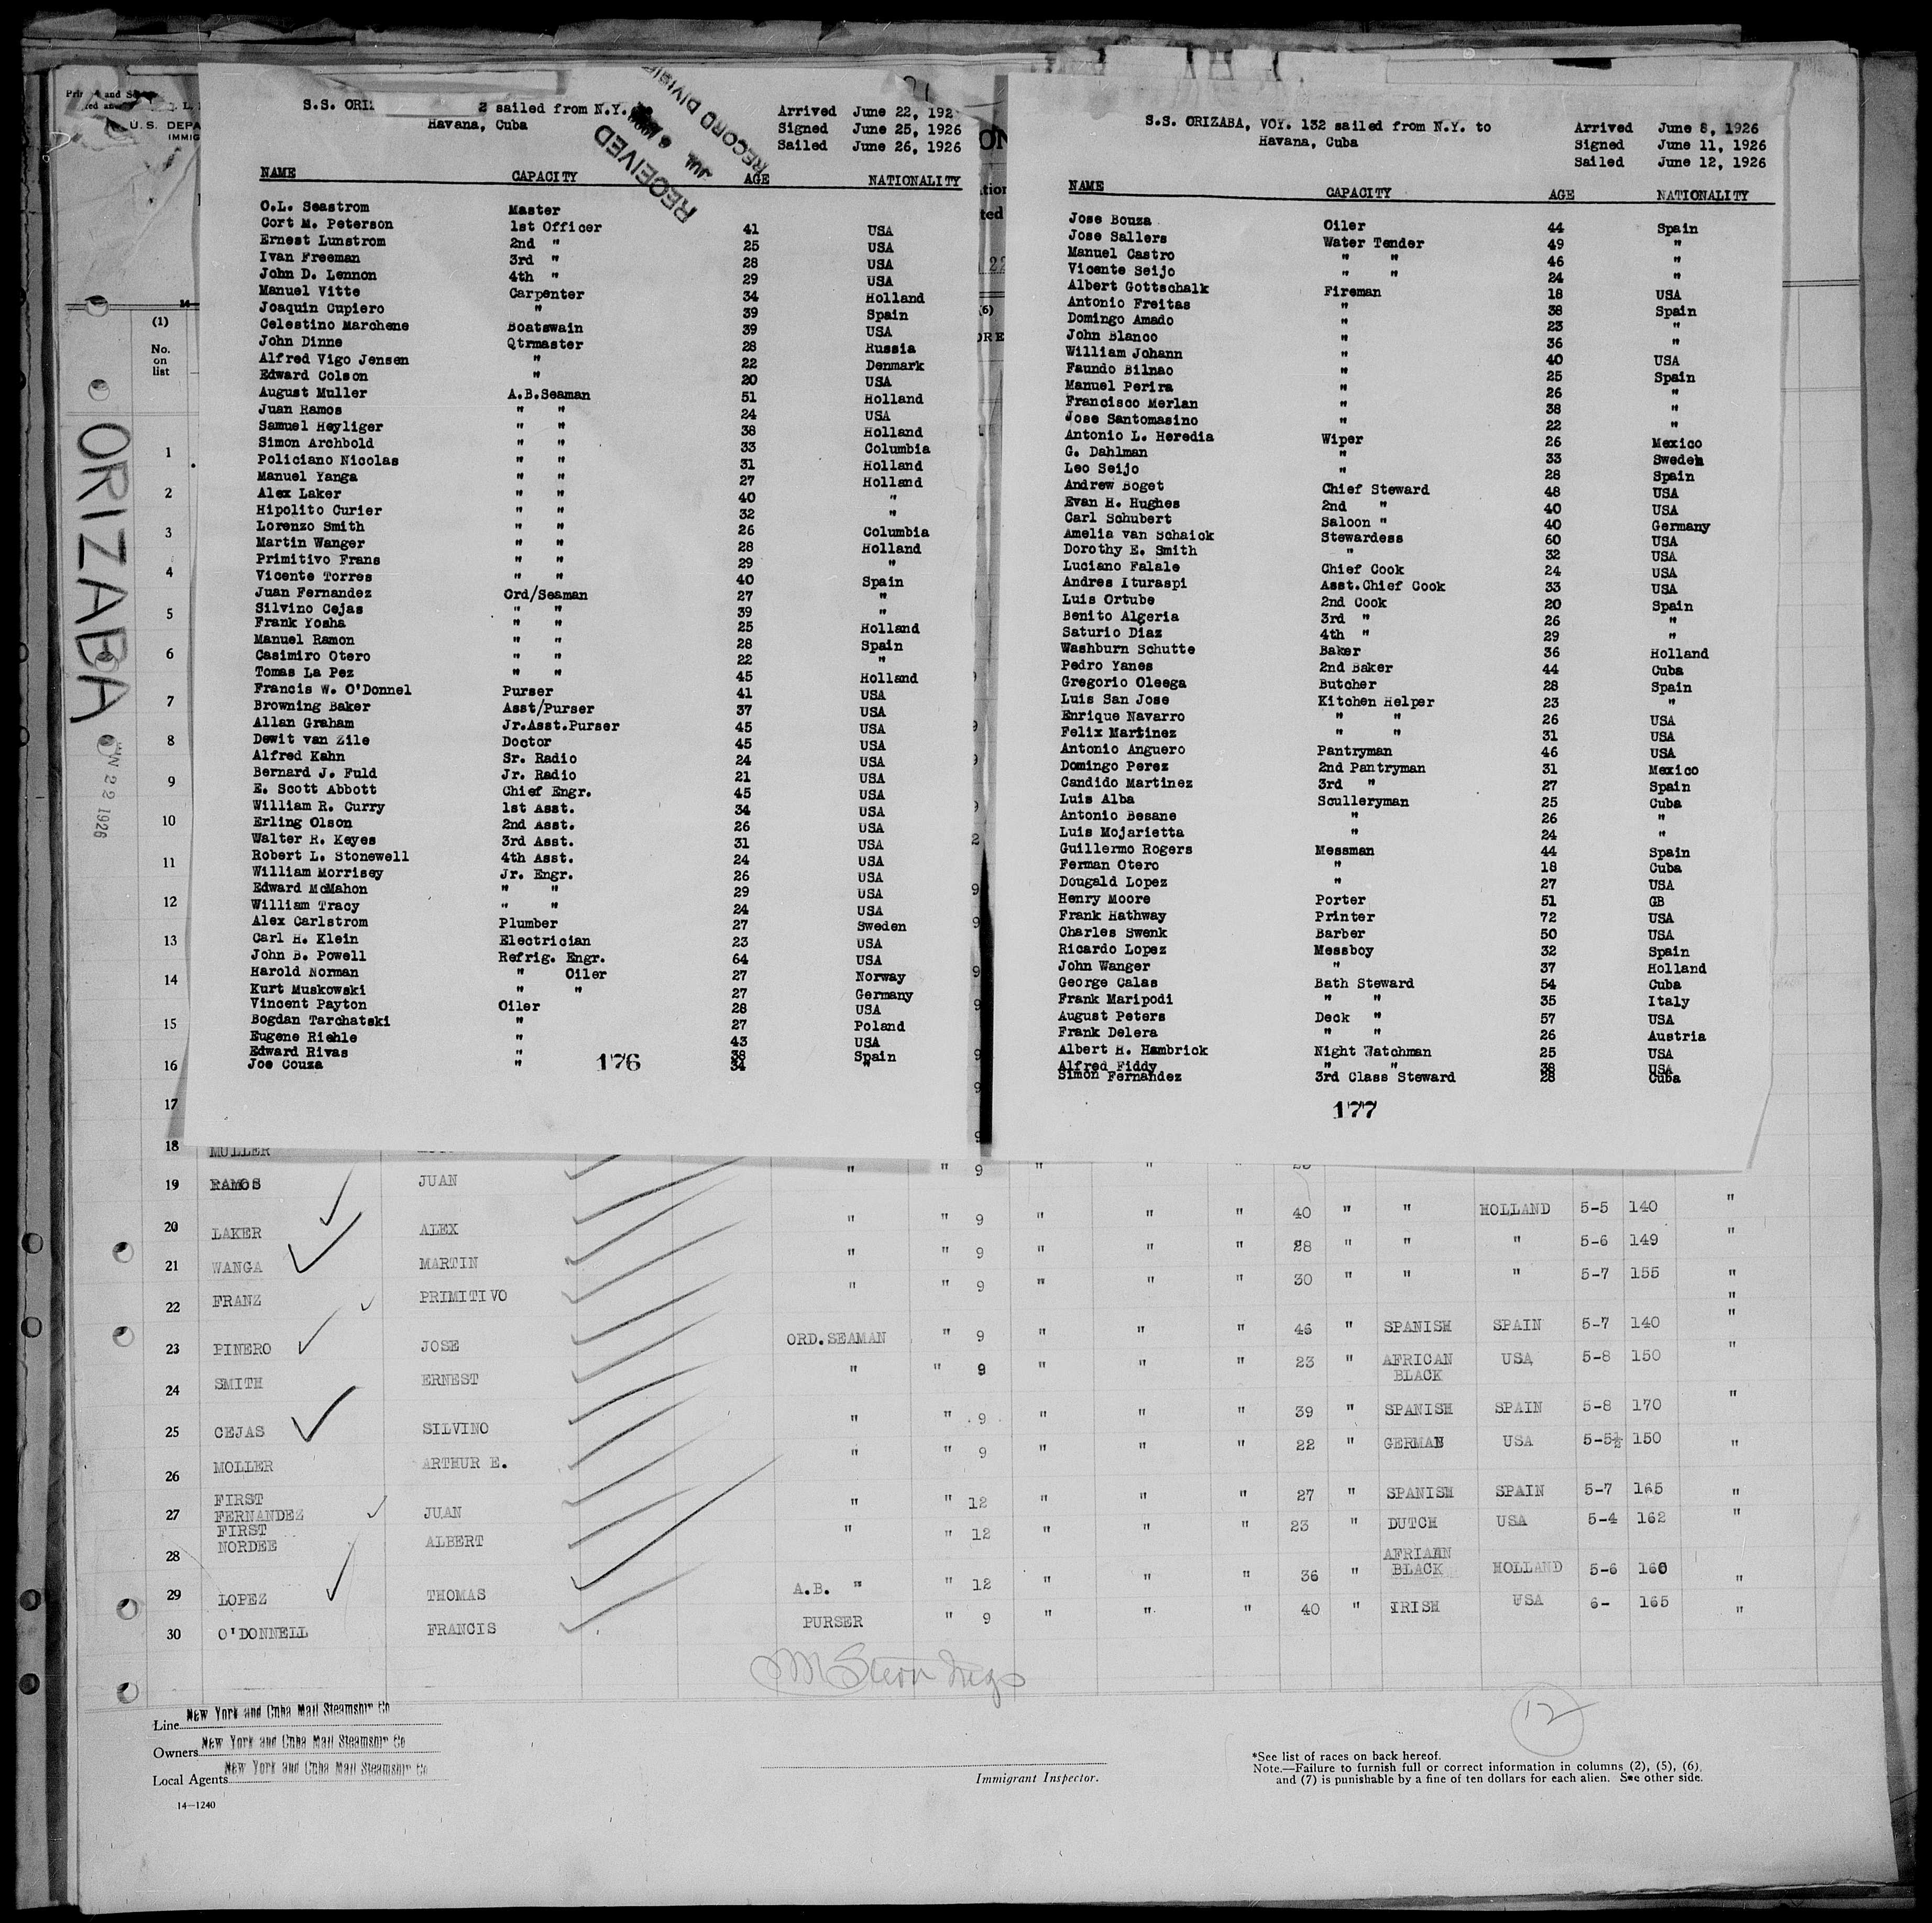 ORIZABA
JUN 22 1926
U.S. DEPA
IMMIG
(1)
No.
on
list
S.S. ORIZ 2 sailed from N.Y.
Havana, Cuba
Arrived June 22, 192
Signed June 25, 1926
Sailed June 26, 1926
RECEIVED
JUL 6
RECORD DIVISI
NAME CAPACITY AGE NATIONALITY
C.L. Seastrom Master
Cort M. Peterson 1st Officer 41 USA
Ernest Lunstrom 2nd " 25 USA
Ivan Freeman 3rd " 28 USA
John D. Lennon 4th " 29 USA
Manuel Vitte Carpenter 34 Holland
Joaquin Cupiero " 39 Spain
Celestino Marchene Boatswain 39 USA
John Dinne Qtrmaster 28 Russia
Alfred Vigo Jensen " 22 Denmark
Edward Colson " 20 USA
August Muller A.B.Seaman 51 Holland
Juan Ramos " " 24 USA
Samuel Heyliger " " 38 Holland
Simon Archbold " " 33 Columbia
Policiano Nicolas " " 31 Holland
Manuel Yanga " " 27 Holland
Alex Laker " " 40 "
Hipolito Curier " " 32 "
Lorenzo Smith " " 26 Columbia
Martin Wanger " " 28 Holland
Primitivo Frans " " 29 "
Vicente Torres " " 40 Spain
Juan Fernandez Ord/Seaman 27 "
Silvino Cejas " " 39 "
Frank Yosha " " 25 Holland
Manuel Ramon " " 28 Spain
Casimiro Otero " " 22 "
Tomas La Pez " " 45 Holland
Francis W. O'Donnel Purser 41 USA
Browning Baker Asst/Purser 37 USA
Allan Graham Jr.Asst.Purser 45 USA
Dewit van Zile Doctor 45 USA
Alfred Kahn Sr. Radio 24 USA
Bernard J. Fuld Jr. Radio 21 USA
E. Scott Abbott Chief Engr. 45 USA
William R. Curry 1st Asst. 34 USA
Erling Olson 2nd Asst. 26 USA
Walter R. Keyes 3rd Asst. 31 USA
Robert L. Stonewell 4th Asst. 24 USA
William Morrisey Jr. Engr. 26 USA
Edward McMahon " " 29 USA
William Tracy " " 24 USA
Alex Carlstrom Plumber 27 Sweden
Carl H. Klein Electrician 23 USA
John B. Powell Refrig. Engr. 64 USA
Harold Norman " Oiler 27 Norway
Kurt Muskowski " " 27 Germany
Vincent Payton Oiler 28 USA
Bogdan Tarchatski " 27 Poland
Eugene Riehle " 43 USA
Edward Rivas " 38 Spain
Joe Couza " 34 "
176
S.S. ORIZABA, VOY. 132 sailed from N.Y. to
Havana, Cuba
Arrived June 8, 1926
Signed June 11, 1926
Sailed June 12, 1926
NAME CAPACITY AGE NATIONALITY
Jose Bouza Oiler 44 Spain
Jose Sallers Water Tender 49 "
Manuel Castro " " 46 "
Vicente Seijo " " 24 "
Albert Gottschalk Fireman 18 USA
Antonio Freitas " 38 Spain
Domingo Amado " 23 "
John Blanco " 36 "
William Johann " 40 USA
Faundo Bilnao " 25 Spain
Manuel Perira " 26 "
Francisco Merlan " 38 "
Jose Santomasino " 22 "
Antonio L. Heredia Wiper 26 Mexico
G. Dahlman " 33 Sweden
Leo Seijo " 28 Spain
Andrew Boget Chief Steward 48 USA
Evan H. Hughes 2nd " 40 USA
Carl Schubert Saloon " 40 Germany
Amelia van Schaick Stewardess 60 USA
Dorothy E. Smith " 32 USA
Luciano Falale Chief Cook 24 USA
Andres Ituraspi Asst.Chief Cook 33 USA
Luis Ortube 2nd Cook 20 Spain
Benito Algeria 3rd " 26 "
Saturio Diaz 4th " 29 "
Washburn Schutte Baker 36 Holland
Pedro Yanes 2nd Baker 44 Cuba
Gregorio Oleega Butcher 28 Spain
Luis San Jose Kitchen Helper 23 "
Enrique Navarro " " 26 USA
Felix Martinez " " 31 USA
Antonio Anguero Pantryman 46 USA
Domingo Perez 2nd Pantryman 31 Mexico
Candido Martinez 3rd " 27 Spain
Luis Alba Sculleryman 25 Cuba
Antonio Besane " 26 "
Luis Mojarietta " 24 "
Guillermo Rogers Messman 44 Spain
Ferman Otero " 18 Cuba
Dougald Lopez " 27 USA
Henry Moore Porter 51 GB
Frank Hathway Printer 72 USA
Charles Swenk Barber 50 USA
Ricardo Lopez Messboy 32 Spain
John Wanger " 37 Holland
George Calas Bath Steward 54 Cuba
Frank Maripodi " " 35 Italy
August Peters Deck " 57 USA
Frank Delera " " 26 Austria
Albert H. Hambrick Night Watchman 25 USA
Alfred Fiddy " " 38 USA
Simon Fernandez 3rd Class Steward 28 Cuba
177
1
2
3
4
5
6
7
8
9
10
11
12
13
14
15
16
17
18 MULLER
19 RAMOS JUAN " " 9 " "
20 LAKER ALEX " " 9 " " " 40 " " HOLLAND 5-5 140 "
21 WANGA MARTIN " " 9 " " " 28 " " " 5-6 149 "
22 FRANZ PRIMITIVO " " 9 " " " 30 " " " 5-7 155 "
23 PINERO JOSE ORD.SEAMAN " 9 " " " 46 " SPANISH SPAIN 5-7 140 "
24 SMITH ERNEST " " 9 " " " 23 " AFRICAN BLACK USA 5-8 150 "
25 CEJAS SILVINO " " 9 " " " 39 " SPANISH SPAIN 5-8 170 "
26 MOLLER ARTHUR E. " " 9 " " " 22 " GERMAN USA 5-5½ 150 "
27 FIRST FERNANDEZ JUAN " " 12 " " " 27 " SPANISH SPAIN 5-7 165 "
28 FIRST NORDEE ALBERT " " 12 " " " 23 " DUTCH USA 5-4 162 "
29 LOPEZ THOMAS A.B. " " 12 " " " 36 " AFRIAAN BLACK HOLLAND 5-6 160 "
30 O'DONNELL FRANCIS PURSER " 9 " " " 40 " IRISH USA 6- 165 "
12
Line New York and Cuba Mail Steamship Co
Owners New York and Cuba Mail Steamship Co
Local Agents New York and Cuba Mail Steamship Co
14—1240
Immigrant Inspector.
*See list of races on back hereof.
Note.—Failure to furnish full or correct information in columns (2), (5), (6),
and (7) is punishable by a fine of ten dollars for each alien. See other side.